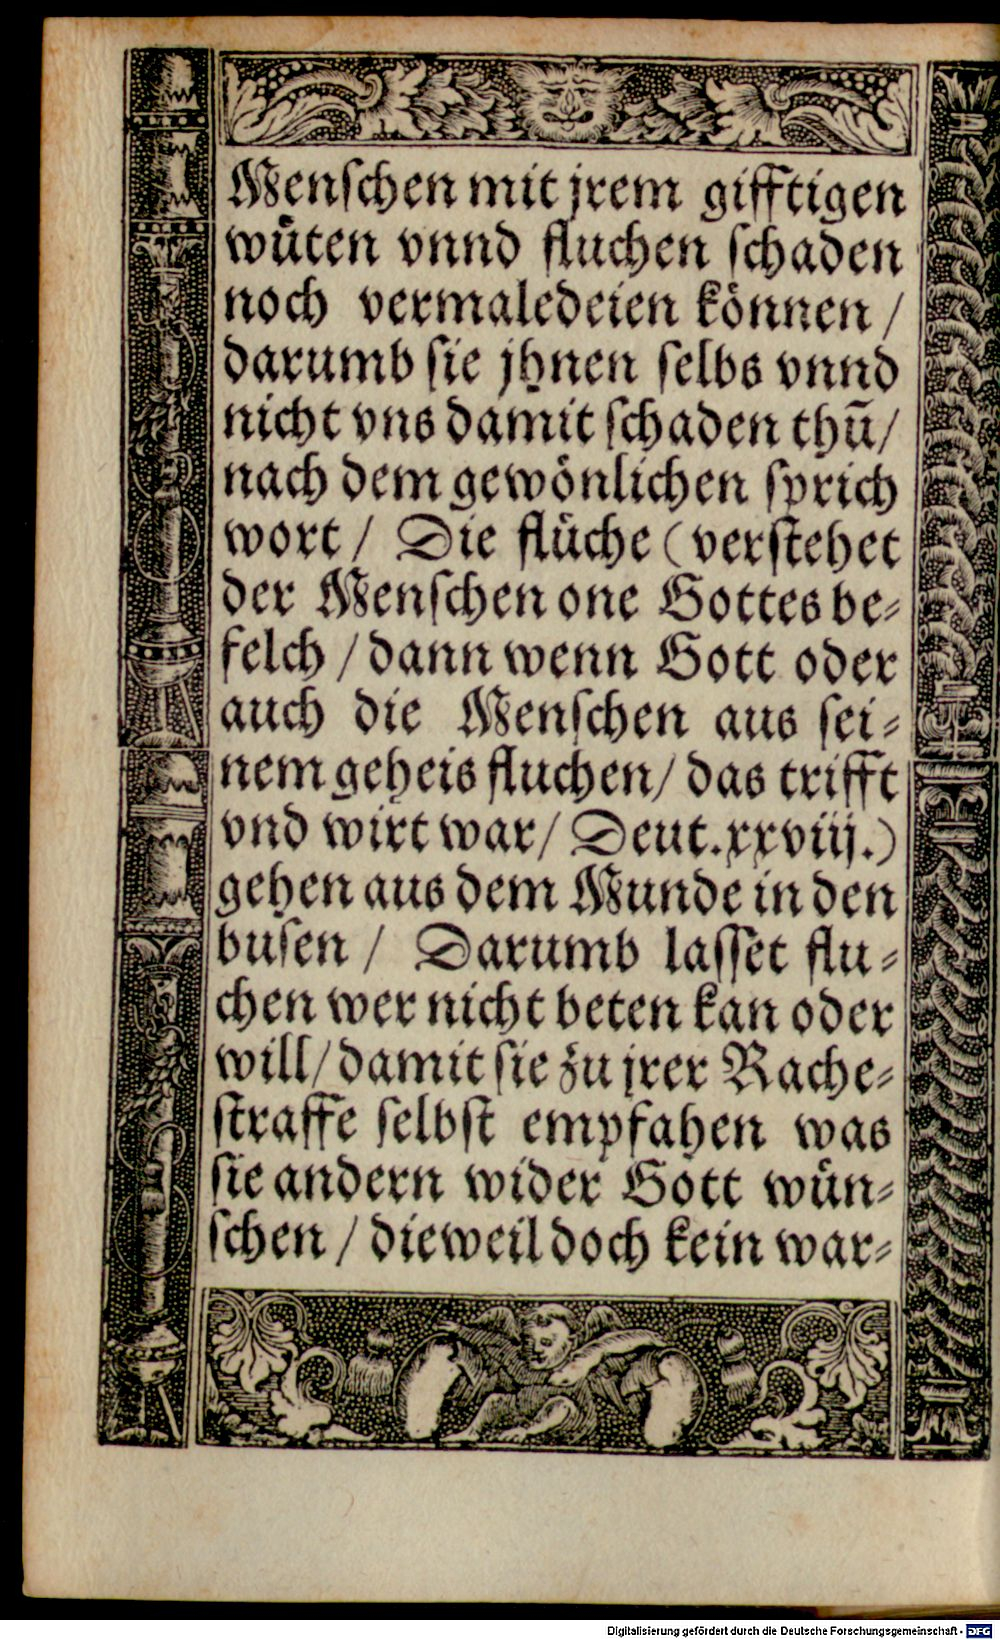 Menſchen mit jrem gifftigen
wüten vnnd fluchen ſchaden
noch vermaledeien können /
darumb ſie jhnen ſelbs vnnd
nicht vns damit ſchaden thū/
nach dem gewönlichen ſprich
wort / Die flüche (verſtehet
der Menſchen one Gottes be⸗
felch / dann wenn Gott oder
auch die Menſchen aus ſei⸗
nem geheis fluchen/ das trifft
vnd wirt war/ Deut.xxviij.)
gehen aus dem Munde in den
buſen / Darumb laſſet flu⸗
chen wer nicht beten kan oder
will/ damit ſie zu jrer Rache⸗
ſtraffe ſelbſt empfahen was
ſie andern wider Gott wün⸗
ſchen / dieweil doch kein war⸗
Digitalisierung gefördert durch die Deutsche Forschungsgemeinschaft - DFG